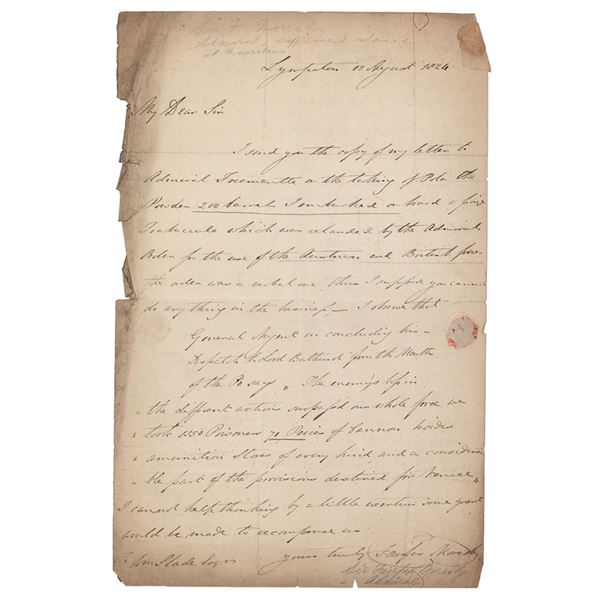 Sir F Moresby
Admiral
at
Lympston 13 August 1824
My Dear Sir
I send you the copy of my letter to
Admiral Freemantle on the taking of Pola the
Powder 200 barrels I embarked on board a prize
Trabacculo which was by the Admirals
Order for the use of the Austrian and British force
the order was a verbal one thus I suppose you cannot
do anything in the business – I observe that
General Nugent in concluding his
Dispatch to Lord Bathurst from the Mouth
of the Po says „ The enemy's loss in
„ the different actions surpassed our whole force we
„ took 1350 Prisoners 71 Pieces of Cannon besides
„ amunition Stores of every kind and a considera
„ ble part of the provisions destined for Venice „
I cannot help thinking by a little exertion some grant
would be made to recompense us
Slade Esqre yours truly Fairfax Moresby
Sir Fairfax Moresby
Admiral